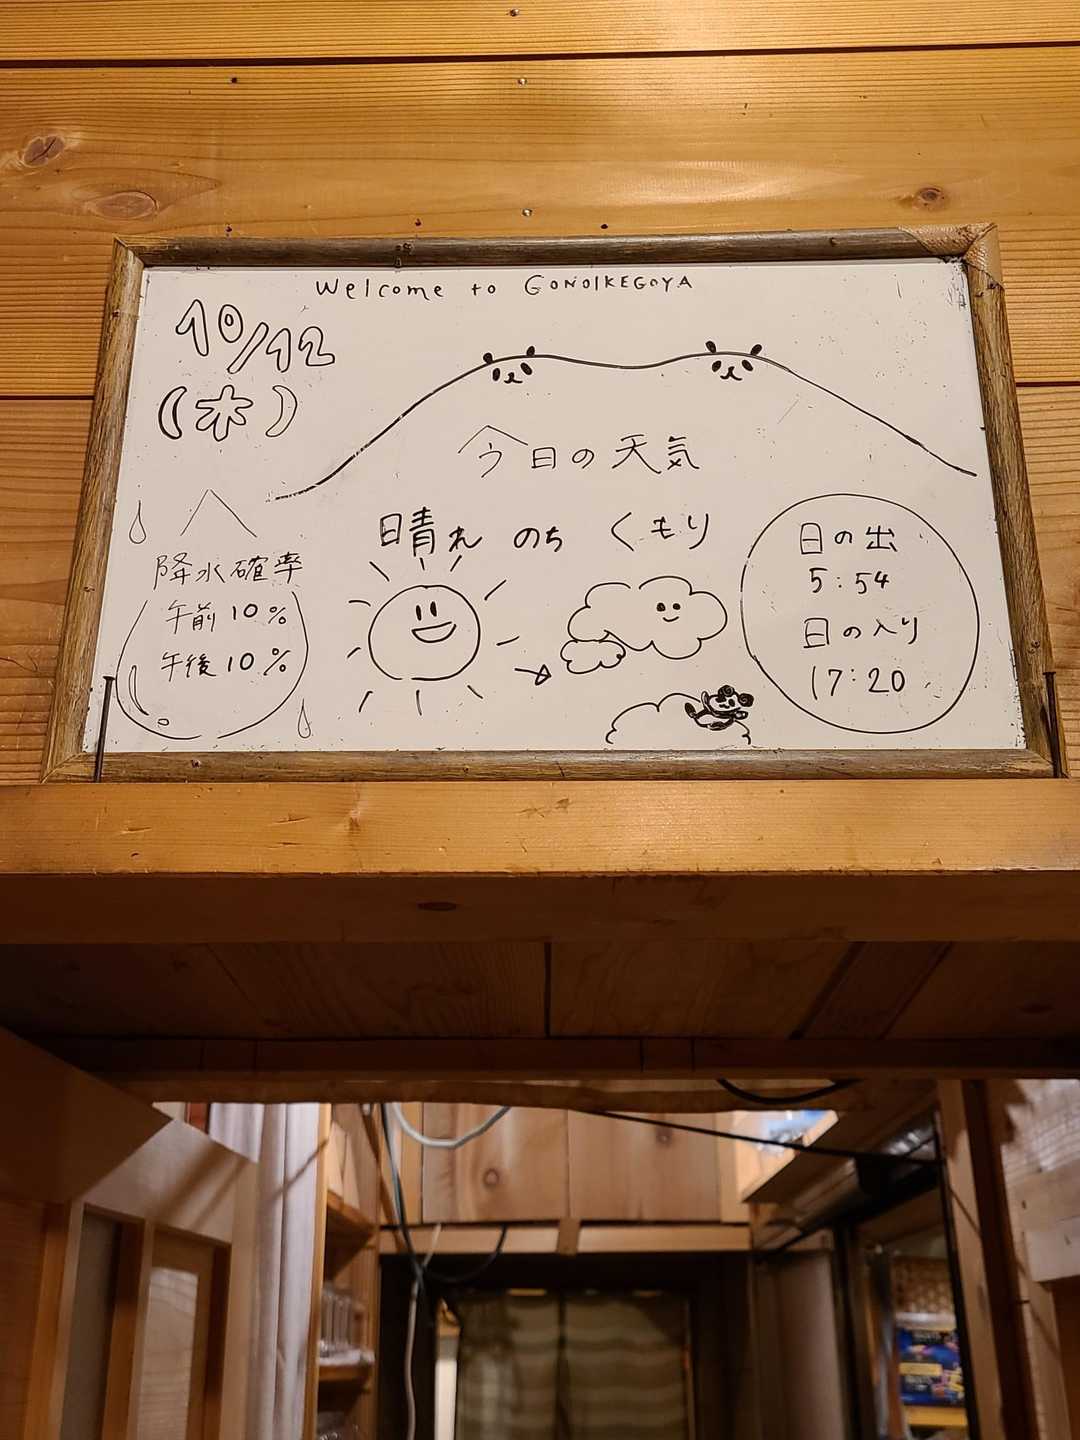 Welcome to GONOIKEGOYA
10/12
(木)
今日の天気
晴れ のち くもり
降水確率
午前 10%
午後 10%
日の出
5:54
日の入り
17:20